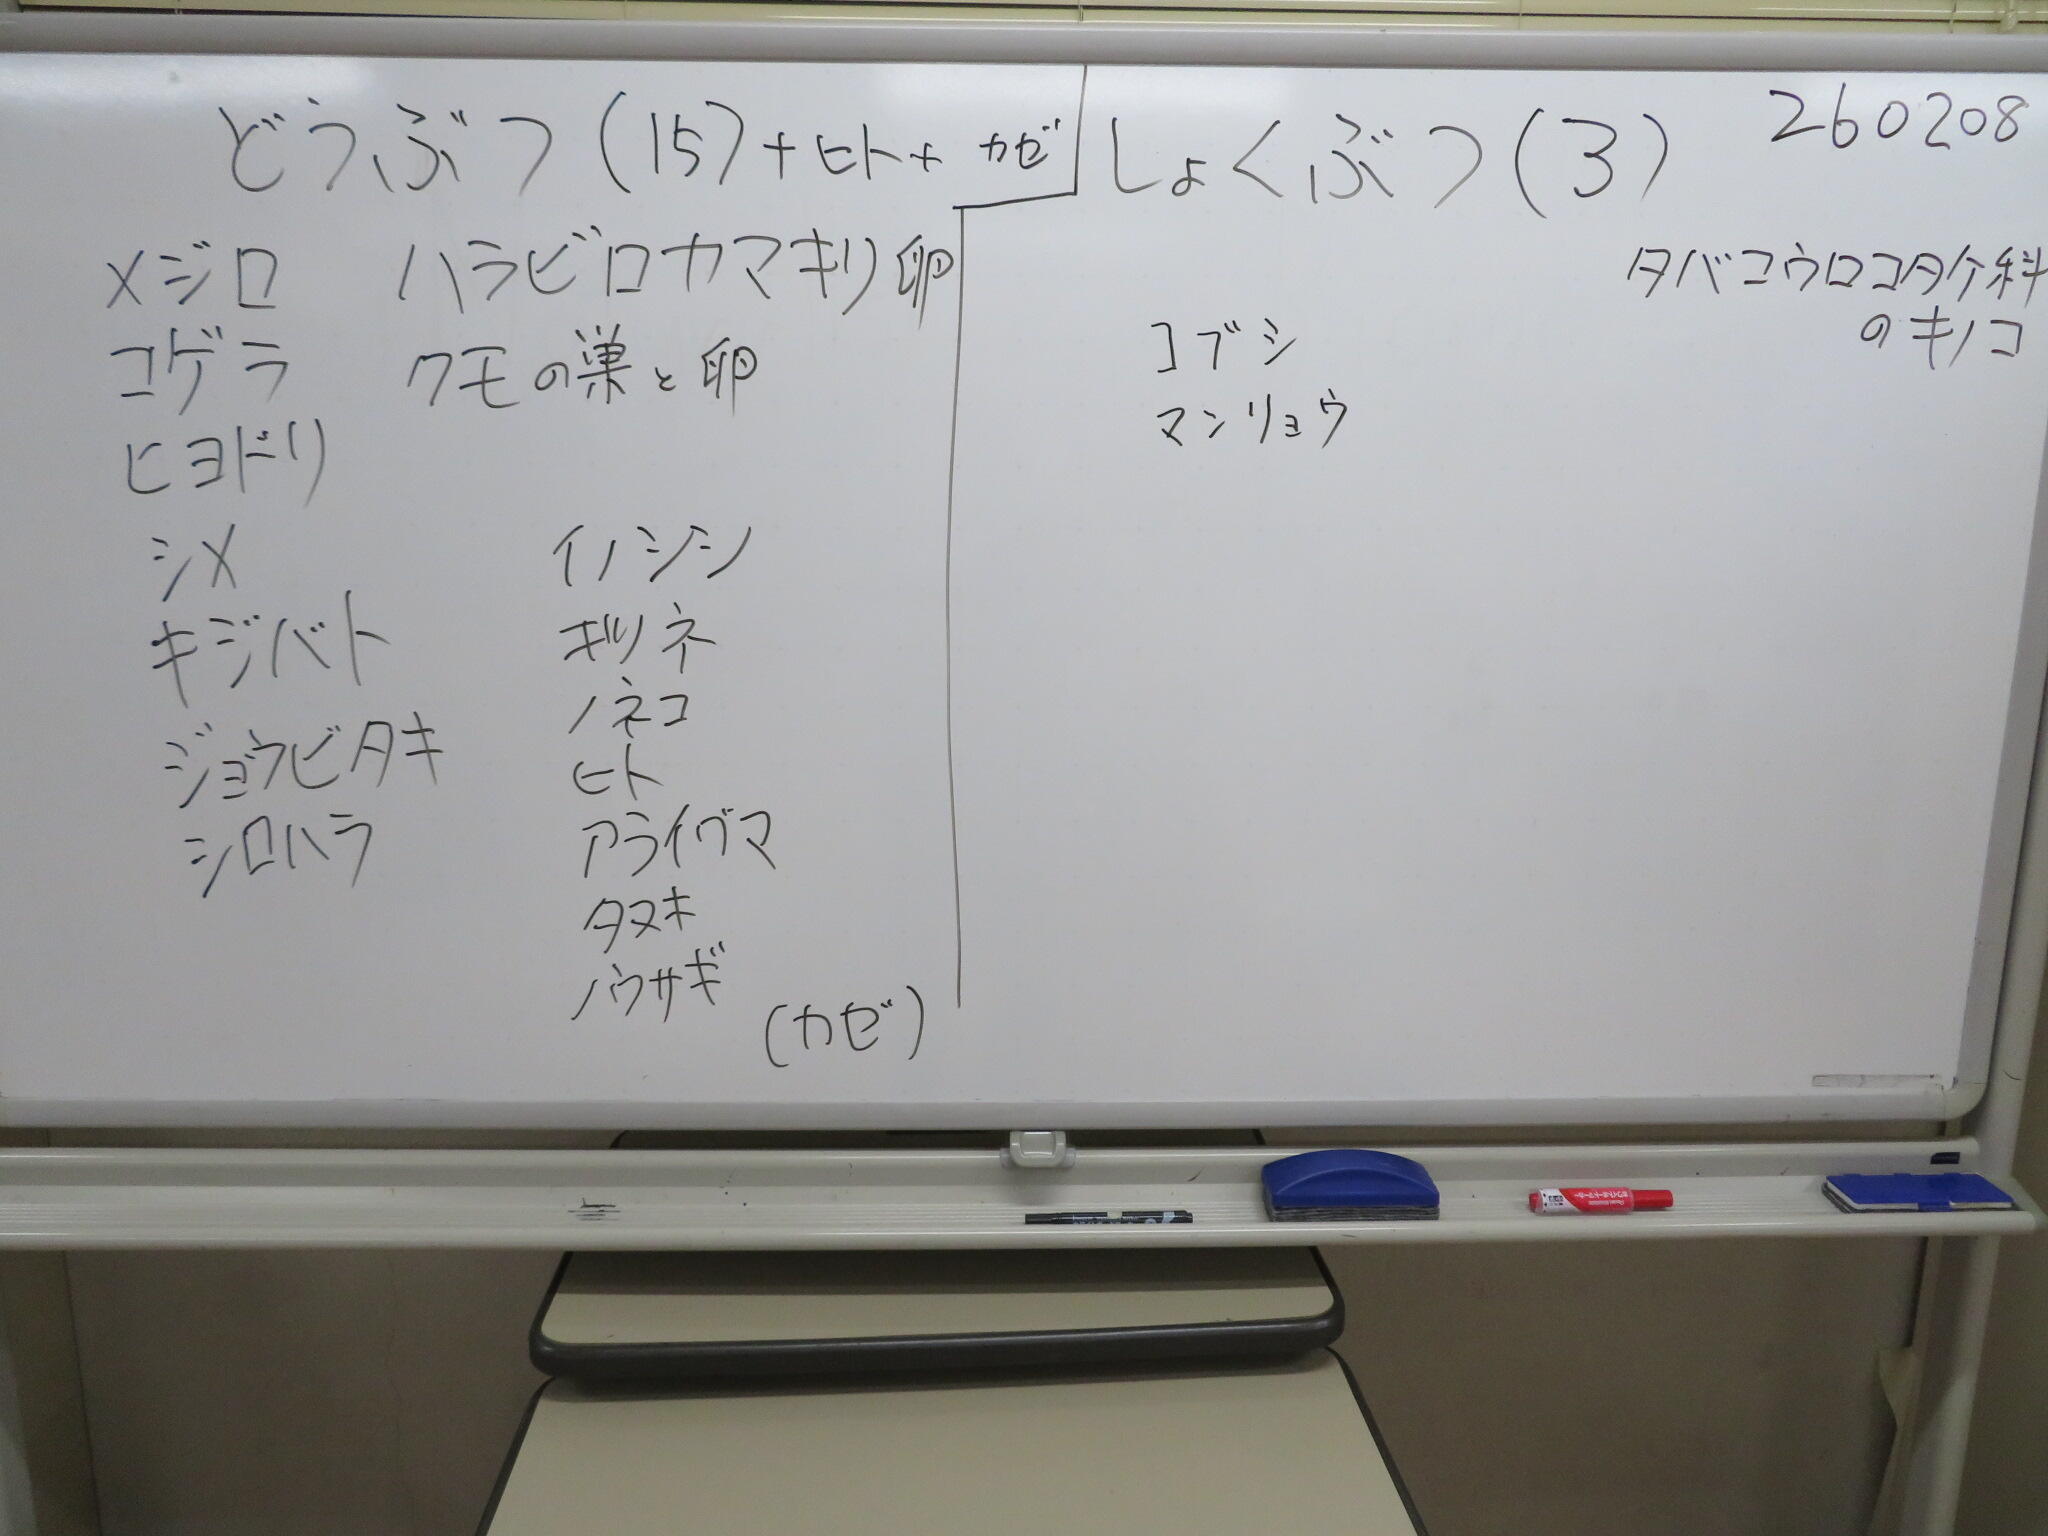 260208
どうぶつ(15)+ヒト+カゼ
メジロ
コゲラ
ヒヨドリ
シメ
キジバト
ジョウビタキ
シロハラ
ハラビロカマキリ卵
クモの巣と卵
イノシシ
キツネ
ノネコ
ヒト
アライグマ
タヌキ
ノウサギ
(カゼ)
しょくぶつ(3)
コブシ
マンリョウ
タバコウロコタケ科
のキノコ